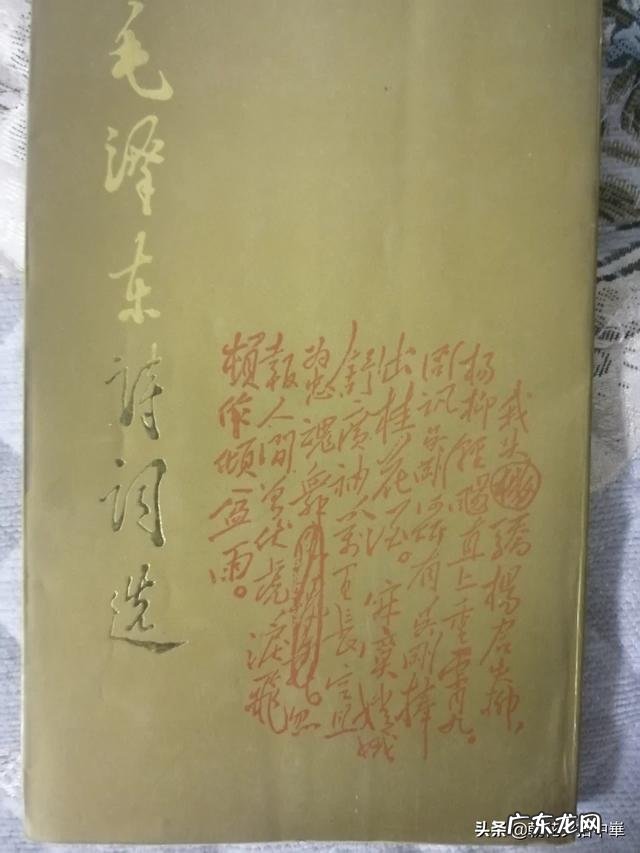 毛泽东詩詞选
我失驕楊君失柳,
杨柳轻颺直上重霄九。
问讯吴刚何所有吴刚捧
出桂花酒。寂寞嫦娥
舒廣袖万里長空且
为忠魂舞忽
報人间曾伏虎淚飛
頓作倾盆雨。
头条 @
广东龙网